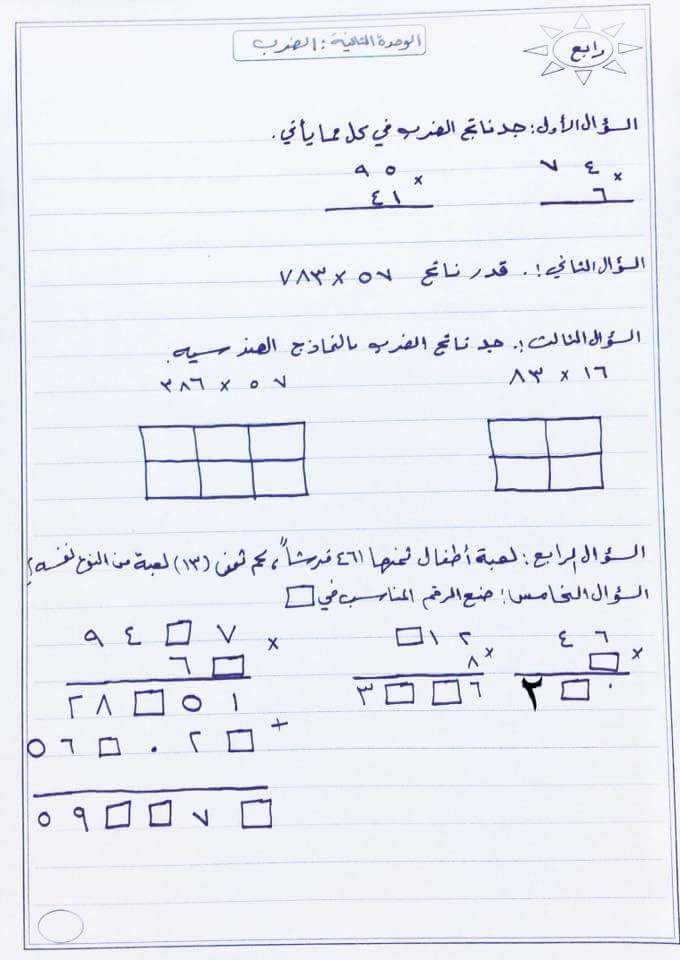 رابع
الوحدة الثانية : الضرب
السؤال الأول : جد ناتج الضرب في كل مما يأتي .
٧ ٤ × ٩ ٥ ×
٦ ٤١
السؤال الثاني : . قدر ناتج ٥٧ × ٧٨٣
السؤال الثالث : . جد ناتج الضرب بالنماذج الهندسية .
١٦ × ٨٣ ٥٧ × ٣٨٦
السؤال الرابع : لعبة أطفال ثمنها ٤٦ قرشاً ، كم ثمن (١٣) لعبة من النوع نفسه ؟
السؤال الخامس : ضع الرقم المناسب في □
٤ ٦ × □ ١ ٢ × ٩ ٤ □ ٧ ×
□ ٨ ٦ □
٢ □ ٠ ٣ □ □ ٦ ٢ ٨ □ ٥ ١
٥ ٦ □ ٠ ٢ □ +
٥ ٩ □ □ ٧ □